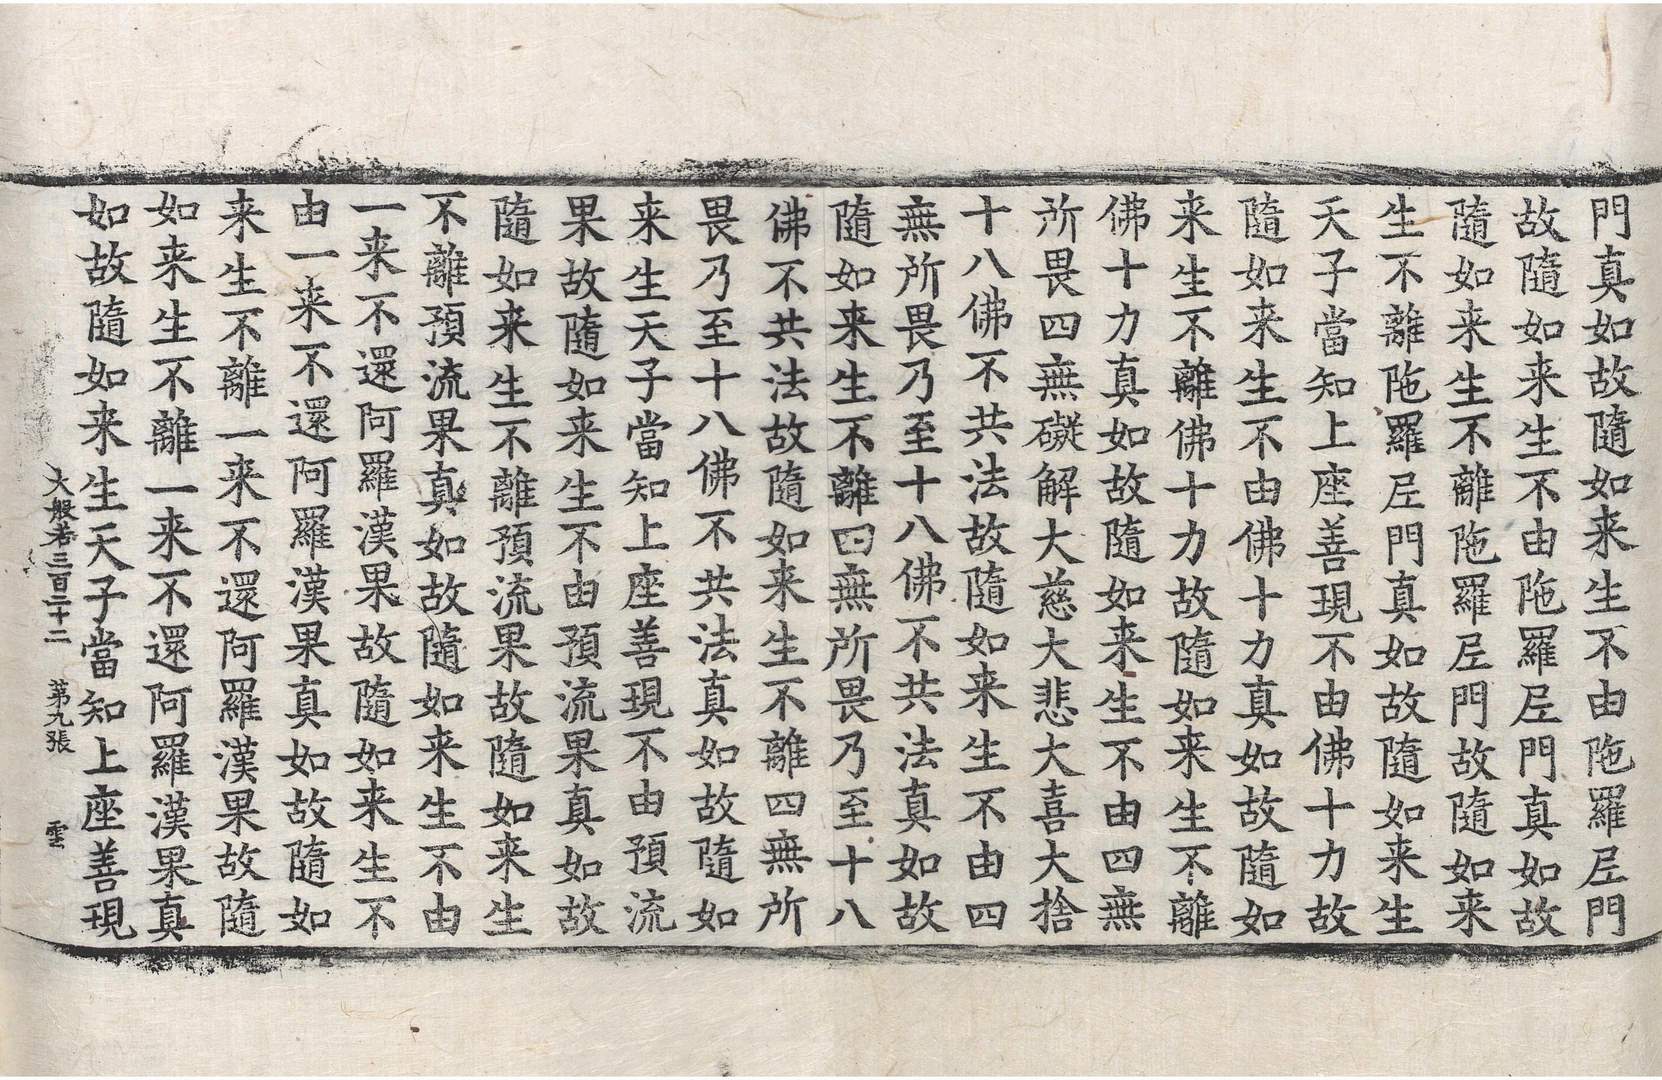 門真如故隨如来生不由陁羅尼門
故隨如来生不由陁羅尼門真如故
隨如来生不離陁羅尼門故隨如来
生不離陁羅尼門真如故隨如来生
天子當知上座善現不由佛十力故
隨如来生不由佛十力真如故隨如
来生不離佛十力故隨如来生不離
佛十力真如故隨如来生不由四無
所畏四無礙解大慈大悲大喜大捨
十八佛不共法故隨如来生不由四
無所畏乃至十八佛不共法真如故
隨如来生不離四無所畏乃至十八
佛不共法故隨如来生不離四無所
畏乃至十八佛不共法真如故隨如
来生天子當知上座善現不由預流
果故隨如来生不由預流果真如故
隨如来生不離預流果故隨如来生
不離預流果真如故隨如来生不由
一来不還阿羅漢果故隨如来生不
由一来不還阿羅漢果真如故隨如
来生不離一来不還阿羅漢果故隨
如来生不離一来不還阿羅漢果真
如故隨如来生天子當知上座善現
大般若三百二十二 第九張 雲